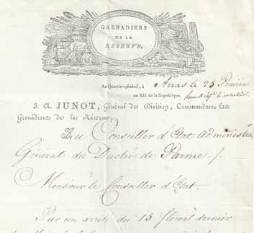 GRENADIERS
DE LA
RÉSERVE.
Au Quartier-général, à Arras le 25
an XIII. de la République
J. A. JUNOT, Général de Division, Commandant les
Grenadiers de la Réserve
Au Conseiller d'Etat, Administrateur
Général du Duché de Parme /
Monsieur le Conseiller d'Etat.
Par un arrêté du 15 floréal dernier